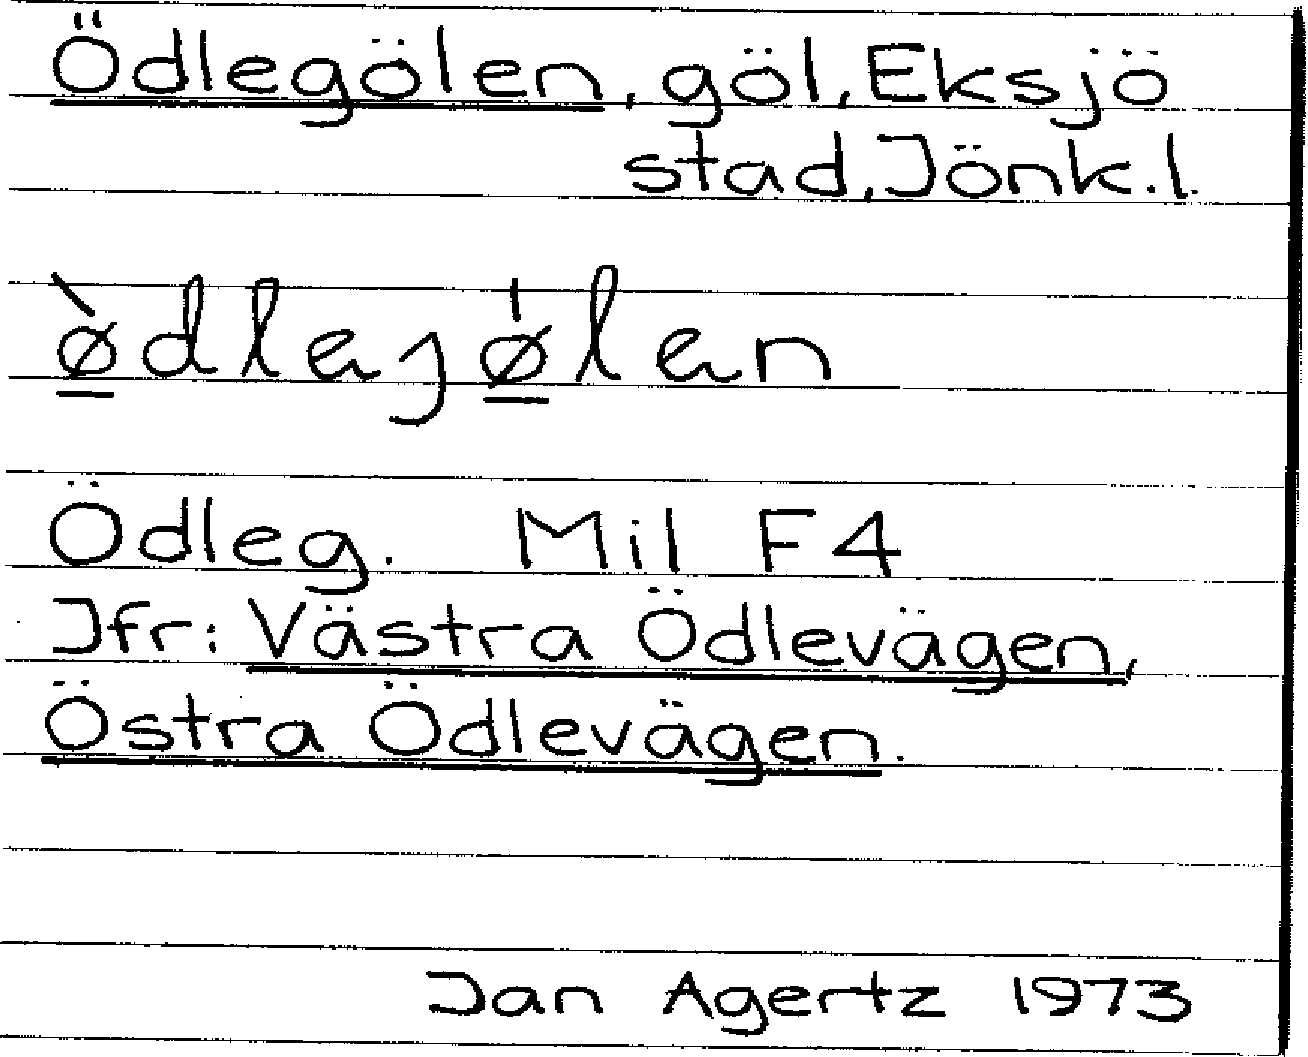 Ödlegölen, göl, Eksjö
stad, Jönk.l.
ø̲̀dlejø̲̍len
Ödleg. Mil F4
Jfr: Västra Ödlevägen,
Östra Ödlevägen.
Jan Agertz 1973